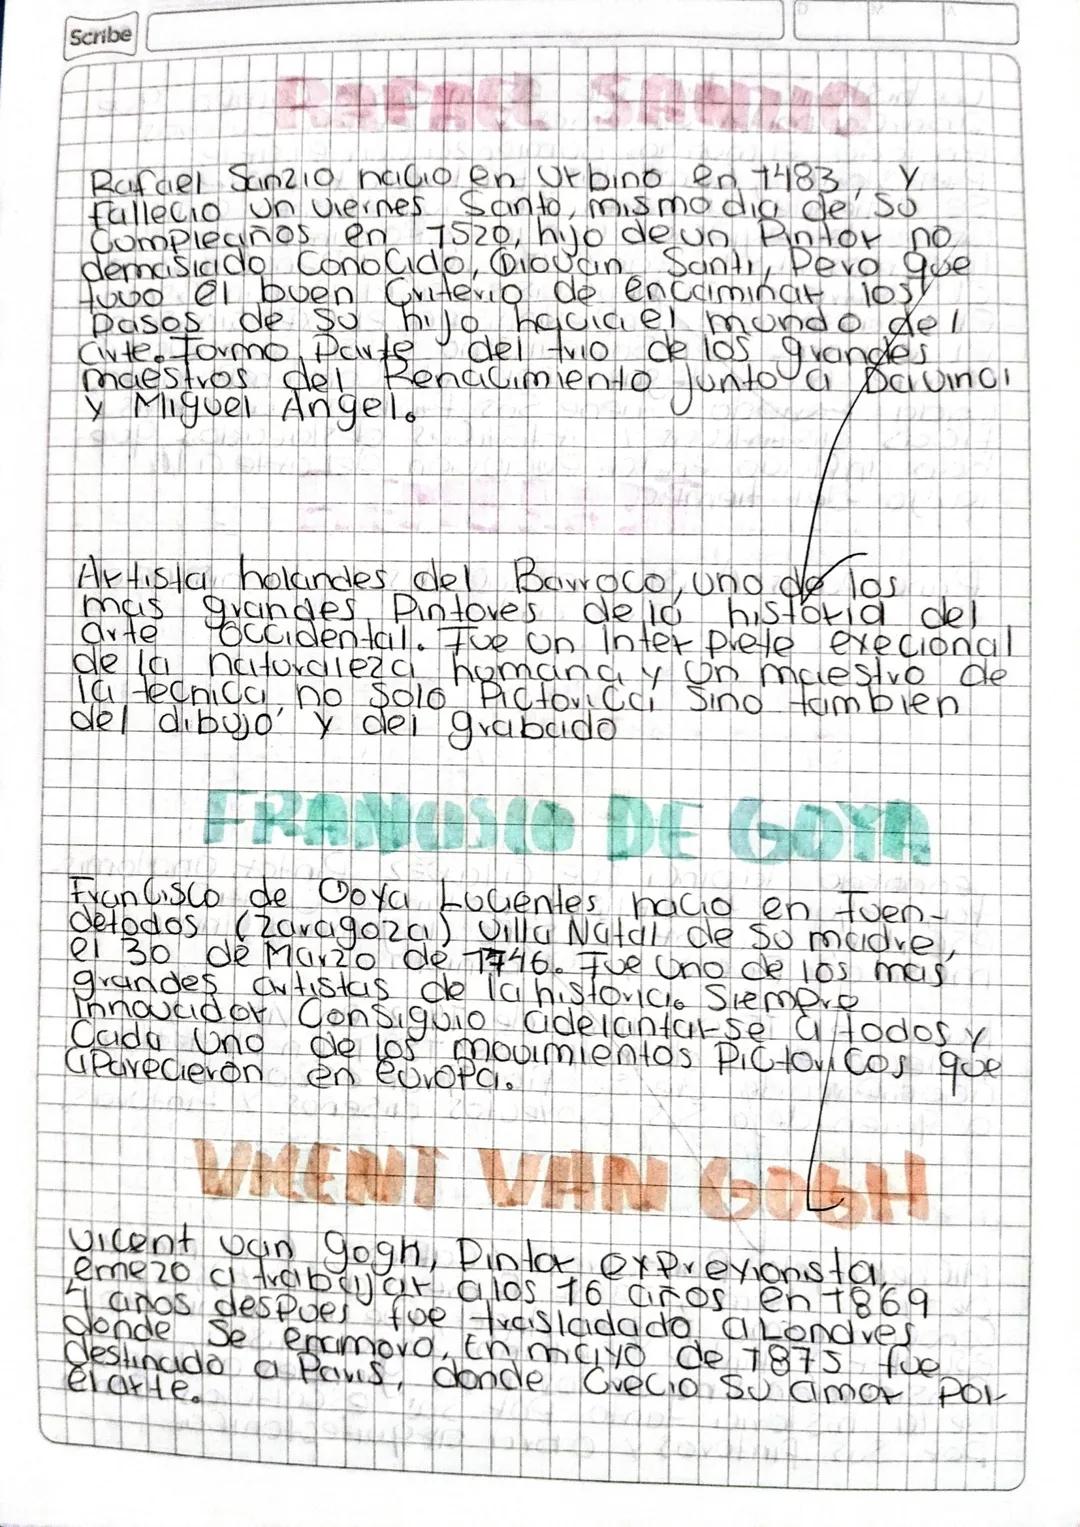 Scribe
RAFAEL SANZIO
Rafael Sanzio nacio en Urbino en 1483, y
fallecio un viernes Santo, mismo dia de su
Compleaños en 1520, hijo de un Pintor no
demasiado Conocido, Giovan Santi, Pero que
tuvo el buen Criterio de encaminar los
Pasos de su hijo hacia el mundo del
arte. Formo Parte del trio de los grandes
maestros del Renacimiento junto a Da vinci
y Miguel Angel.
Artista holandes del Barroco, uno de los
mas grandes Pintores de la historia del
arte occidental. Fue un Inter prete execional
de la naturaleza humana y un maestro de
la tecnica, no Solo Pictorica Sino tambien
del dibujo y del grabado
FRANCISCO DE GOYA
Francisco de Goya Lucientes nacio en Fuen-
detodos (Zaragoza) villa Natal de su madre,
el 30 de Marzo de 1746. Fue uno de los mas
grandes artistas de la historia. Siempre
Innovador Consiguio adelantar-se a todos y
Cada uno de los movimientos Pictoricos que
aParecieron en europa.
VICENT VAN GOGH
vicent van gogh, Pintor expreyionista,
emezo a trabayar a los 16 años en 1869
4 años despues fue trasladado a Londres
donde se enamoro, En mayo de 1875 fue
destinado a Paris, donde Crecio su amor Por
el arte.